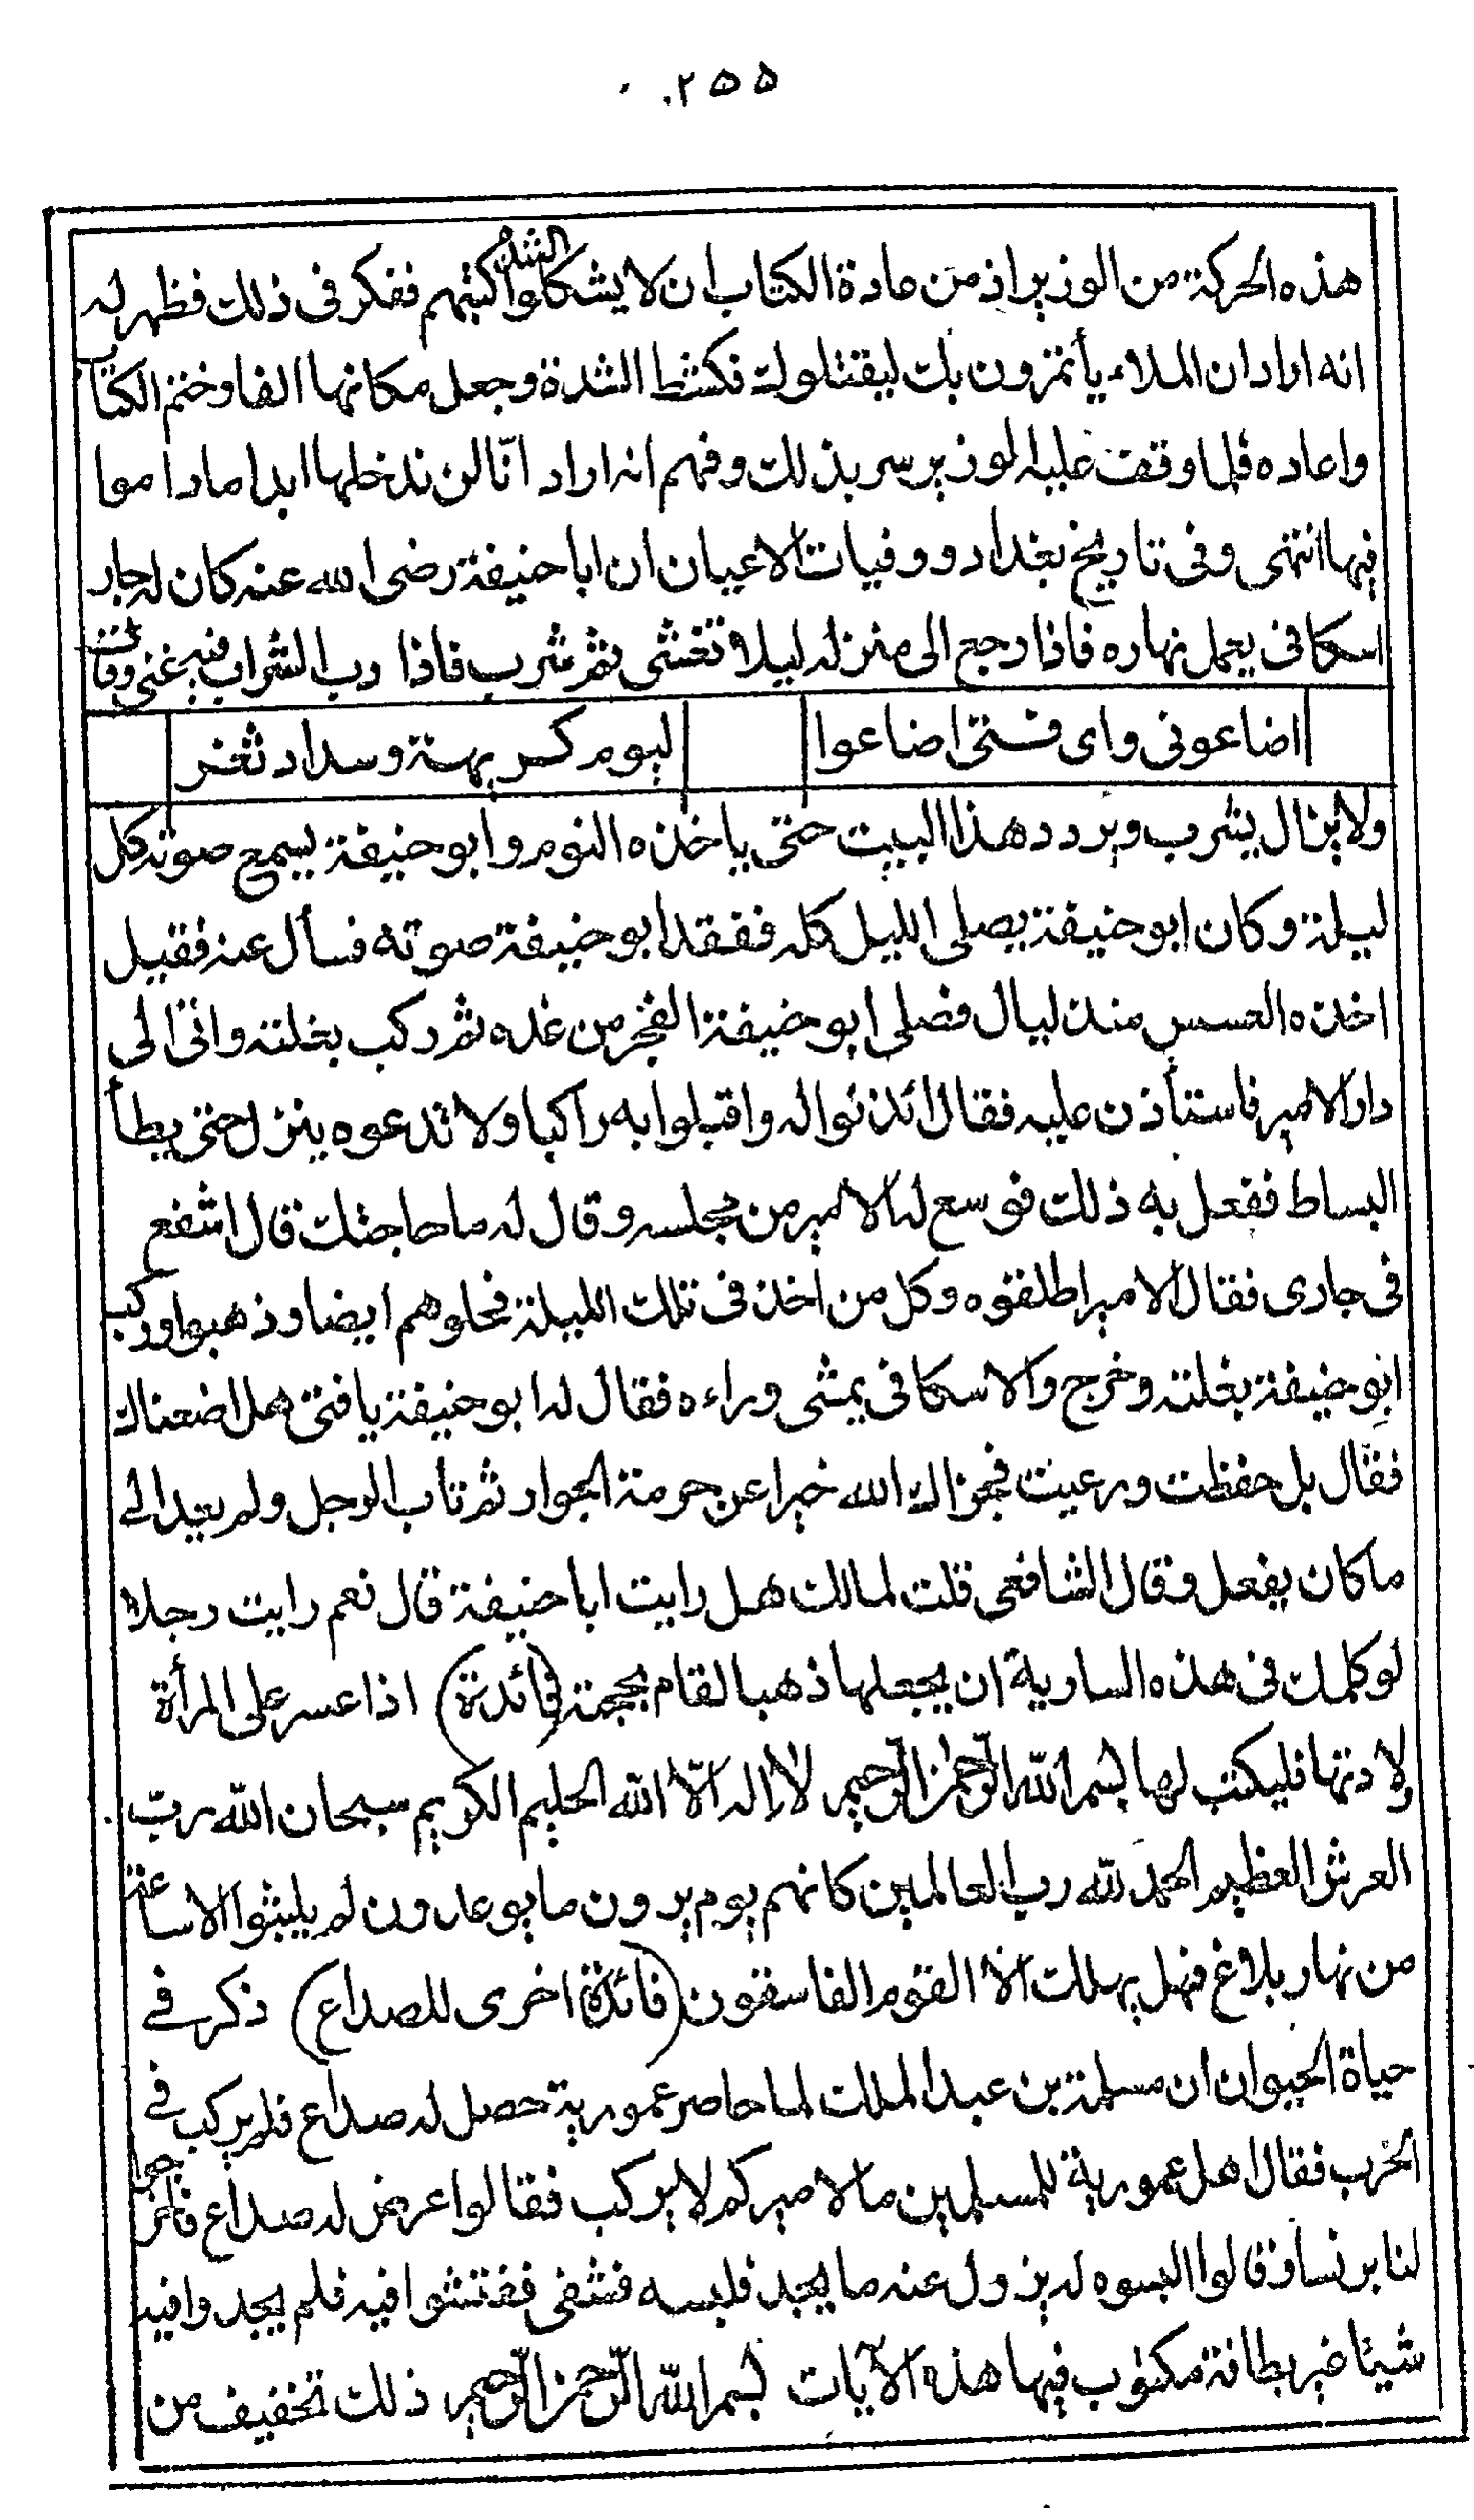 ٢٥٥
هذه الحركة من الوزير اذ من عادة الكتاب ان لا يشكلوا كتبهم ففكر فى ذلك فظهر له
انه اراد ان الملاء يأتمرون بك ليقتلوك فكشط الشدة وجعل مكانها الفا وختم الكتاب
واعاده فلما وقف عليه الوزير سر بذلك وفهم انه اراد انّا لن ندخلها ابدا ماداموا
فيها انتهى وفى تاريخ بغداد ووفيات الاعيان ان ابا حنيفة رضى الله عنه كان له جار
اسكافى يعمل نهاره فاذا رجع الى منزله ليلا تعشى ثم شرب فاذا دب الشراب فيه غنى وقال
اضاعونى واى فتى اضاعوا ليوم كريهة وسداد ثغر
ولا يزال يشرب ويردد هذا البيت حتى ياخذه النوم وابو حنيفة يسمع صوته كل
ليلة وكان ابو حنيفة يصلى الليل كله ففقد ابو حنيفة صوته فسأل عنه فقيل
اخذه العسس منذ ليال فصلى ابو حنيفة الفجر من غده ثم ركب بغلته واتى الى
دار الامير فاستأذن عليه فقال ائذنوا له واقبلوا به راكبا ولا تدعوه ينزل حتى يطأ
البساط ففعل به ذلك فوسع له الامير من مجلسه وقال له ما حاجتك قال اشفع
فى جارى فقال الامير اطلقوه وكل من اخذ فى تلك الليلة فخلوهم ايضا وذهبوا وركب
ابو حنيفة بغلته وخرج والاسكافى يمشى وراءه فقال له ابو حنيفة يا فتى هل اضعناك
فقال بل حفظت ورعيت فجزاك الله خيرا عن حرمة الجوار ثم تاب الرجل ولم يعد الى
ما كان يفعل وقال الشافعى قلت لمالك هل رايت ابا حنيفة قال نعم رايت رجلا
لو كلمك فى هذه السارية ان يجعلها ذهبا لقام بحجته (فائدة) اذا عسر على المرأة
ولادتها فليكتب لها بسم الله الرحمن الرحيم لا اله الّا الله الحليم الكريم سبحان الله ربّ
العرش العظيم الحمد لله رب العالمين كانهم يوم يرون ما يوعدون لم يلبثوا الا ساعة
من نهار بلاغ فهل يهلك الا القوم الفاسقون (فائدة اخرى للصداع) ذكر فى
حياة الحيوان ان مسلمة بن عبد الملك لما حاصر عمورية حصل له صداع فلم يركب فى
الحرب فقال اهل عمورية للمسلمين ما لاميركم لا يركب فقالوا عرض له صداع فاخرجوا
لنا برنسا وقالوا البسوه له يزول عنه ما يجد فلبسه فشفى ففتشوا فيه فلم يجدوا فيه
شيئا غير بطاقة مكتوب فيها هذه الآيات بسم الله الرحمن الرحيم ذلك تخفيف من